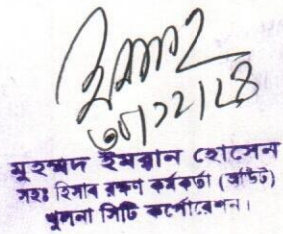 ৩০/১২/১৪
মুহম্মদ ইমরান হোসেন
সহঃ হিসাব রক্ষণ কর্মকর্তা (অডিট)
খুলনা সিটি কর্পোরেশন।